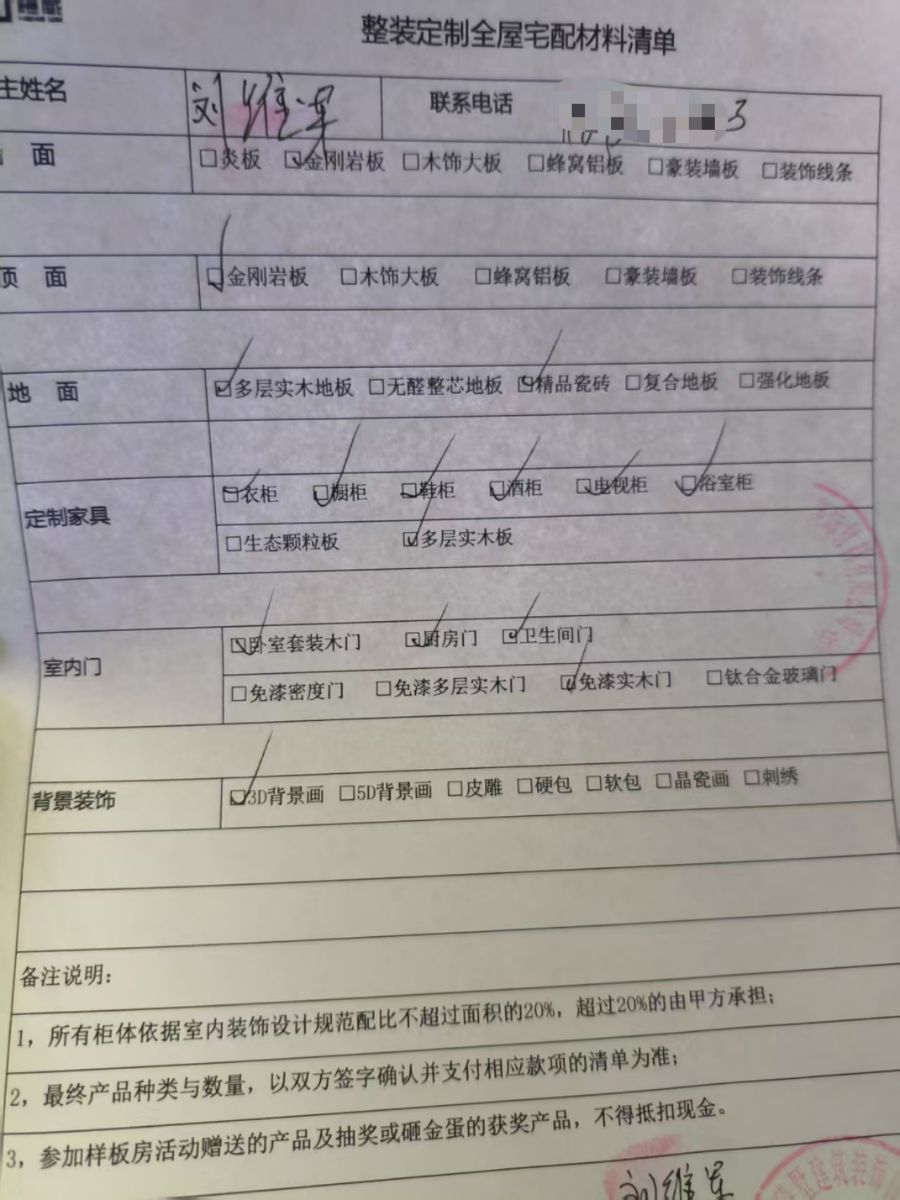 整装定制全屋宅配材料清单
主姓名 刘维军 联系电话 3
面 □炎板 ☑金刚岩板 □木饰大板 □蜂窝铝板 □豪装墙板 □装饰线条
顶 面 ☑金刚岩板 □木饰大板 □蜂窝铝板 □豪装墙板 □装饰线条
地 面 ☑多层实木地板 □无醛整芯地板 ☑精品瓷砖 □复合地板 □强化地板
定制家具 ☑衣柜 ☑橱柜 ☑鞋柜 ☑酒柜 ☑电视柜 ☑浴室柜
□生态颗粒板 ☑多层实木板
室内门 ☑卧室套装木门 ☑厨房门 ☑卫生间门
□免漆密度门 □免漆多层实木门 ☑免漆实木门 □钛合金玻璃门
背景装饰 ☑3D背景画 □5D背景画 □皮雕 □硬包 □软包 □晶瓷画 □刺绣
备注说明:
1, 所有柜体依据室内装饰设计规范配比不超过面积的20%, 超过20%的由甲方承担;
2, 最终产品种类与数量, 以双方签字确认并支付相应款项的清单为准;
3, 参加样板房活动赠送的产品及抽奖或砸金蛋的获奖产品, 不得抵扣现金。
刘维军
建筑装饰